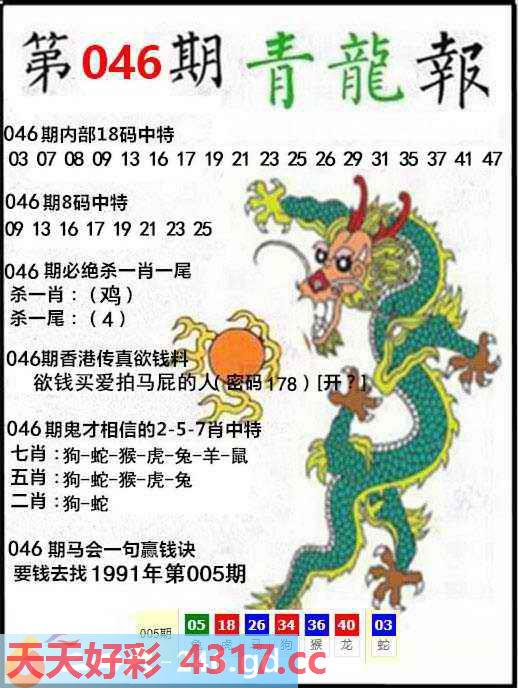 第046期青龍報
046期内部18码中特
03 07 08 09 13 16 17 19 21 23 25 26 29 31 35 37 41 47
046期8码中特
09 13 16 17 19 21 23 25
046期必绝杀一肖一尾
杀一肖:(鸡)
杀一尾:(4)
046期香港传真欲钱料
欲钱买爱拍马屁的人(密码178)[开?]
046期鬼才相信的2-5-7肖中特
七肖:狗-蛇-猴-虎-兔-羊-鼠
五肖:狗-蛇-猴-虎-兔
二肖:狗-蛇
046期马会一句赢钱诀
要钱去找1991年第005期
005期 05 18 26 34 36 40 03
兔 虎 马 狗 猴 龙 蛇
天天好彩 4317.cc